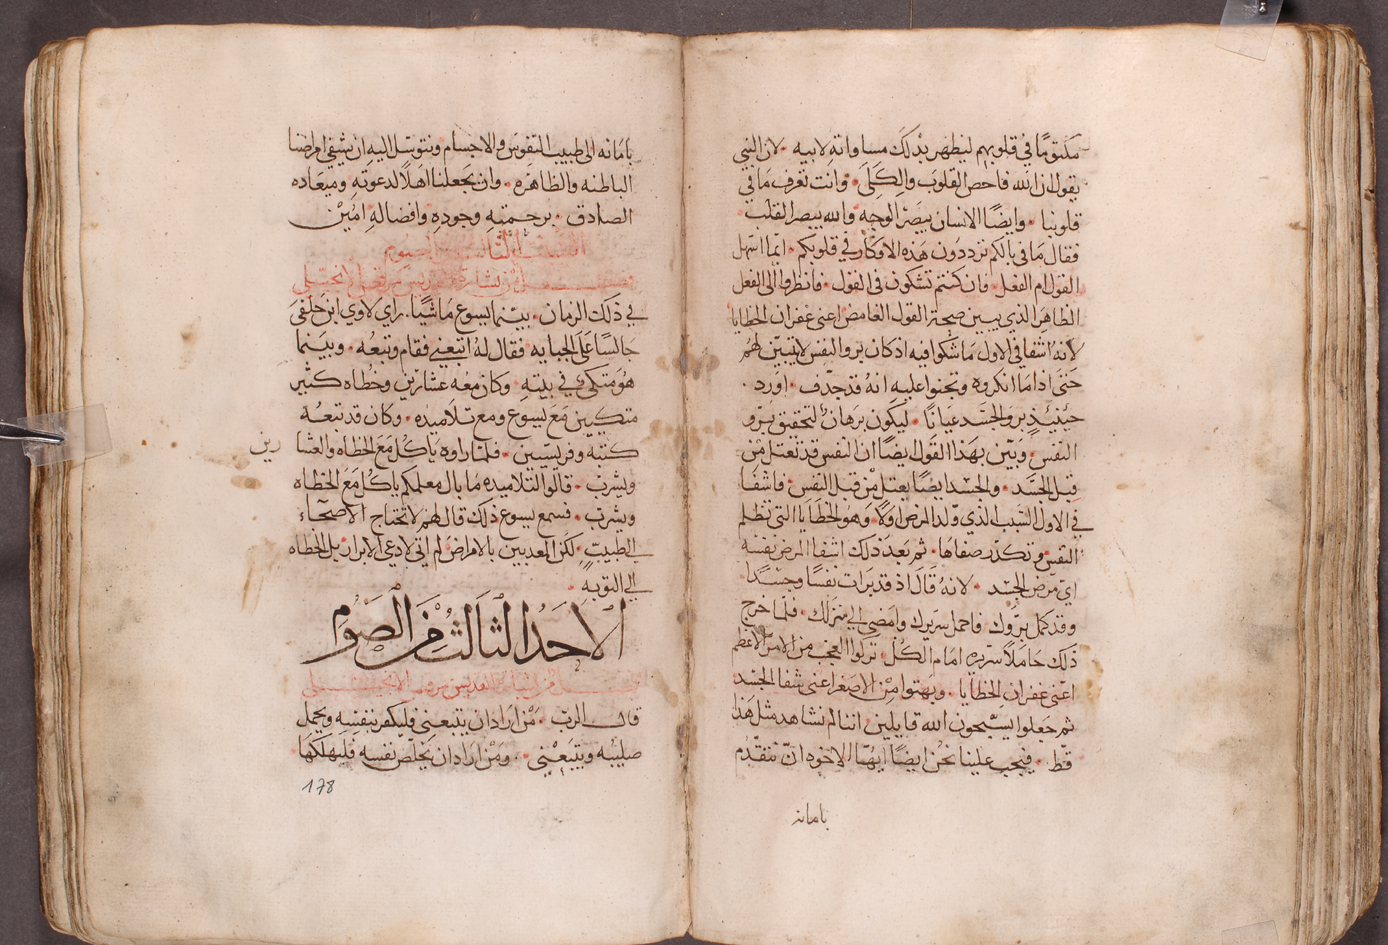 مكتومًا في قلوبهم ليظهر بذلك مساواته لابيه . لان النبي
يقول ان الله فاحص القلوب والكلى . وانت تعرف ما في
قلوبنا . وايضًا الانسان يبصر الوجه والله يبصر القلب
فقال ما في بالكم ترددون هذه الافكار في قلوبكم . ايما اسهل
القول ام الفعل . فان كنتم تشكون في القول . فانظروا الى الفعل
الظاهر الذي يبين صحة القول الغامض اعني غفران الخطايا
لانه اشفا في الاول ما شكوا فيه اذ كان برو النفس لا يتبين لهم
حتى اذا ما انكروه وتجنوا عليه انه قد جدف . اورد .
حينيذٍ برو الجسد عيانًا . ليكون برهان لتحقيق برو
النفس . وبين بهذا القول ايضًا ان النفس قد تعتل من
قبل الجسد . والجسد ايضًا يعتل من قبل النفس . فاشفا
في الاول السبب الذي ولد المرض اولا . وهو الخطايا التي تظلم
النفس وتكدر صفاها . ثم بعد ذلك اشفا المرض نفسه
اي مرض الجسد . لانه قال اذ قد برات نفسًا وجسدًا
وقد كمل بروك فاحمل سريرك وامضي الى منزلك . فلما خرج
ذلك حاملاً سريره امام الكل . تركوا العجب من الامر الاعظم
اعني غفران الخطايا . وبهتوا من الاصغر اعني شفا الجسد
ثم جعلوا يسبحون الله قايلين . اننا لم نشاهد مثل هذا
قط . فيجب علينا نحن ايضًا ايها الاخوه ان نتقدم
بامانه
بامانه الى طبيب النفوس والاجسام . ونتوسل اليه ان يشفي امراضنا
الباطنه والظاهره . وان يجعلنا اهلاً لدعوته وميعاده
الصادق . برحمته وجوده وافضاله امين
السبت الثالث من الصوم
في ذلك الزمان . بينما يسوع ماشيًا . راي لاوي ابن حلفى
جالسًا على الجبايه فقال له اتبعني فقام وتبعه . وبينما
هو متكي في بيته . وكان معه عشارين وخطاه كثير
متكيين مع يسوع ومع تلاميده . وكان قد تبعه
كتبه وفريسيين . فلما راوه ياكل مع الخطاه والعشا
رين
ويشرب . قالوا لتلاميده ما بال معلمكم ياكل مع الخطاه
ويشرب . فسمع يسوع ذلك قال لهم لا تحتاج الاصحاء
الى طبيب . لكن المعدبين بالامراض لم اتي لادعي الابرار بل الخطاه
الى التوبه
الاحد الثالث من الصوم
فصل من بشارة القديس مرقس الانجيلي
قال الرب . من اراد ان يتبعني فليكفر بنفسه ويحمل
صليبه ويتبعني . ومن اراد ان يخلص نفسه فليهلكها
178